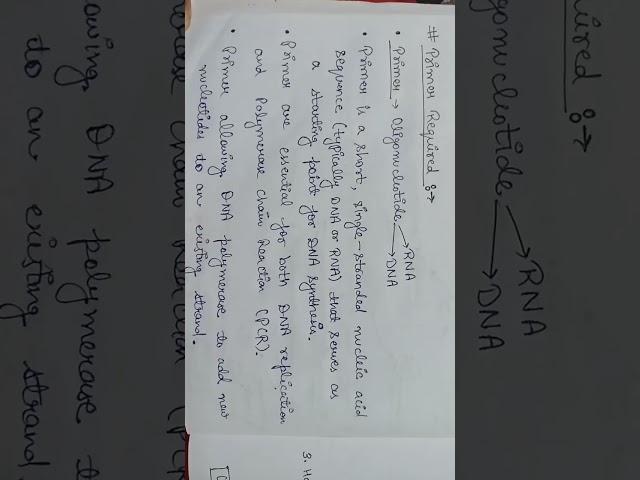 # Primer Required :→
• Primer → Oligonucleotide → RNA
→ DNA
• Primer is a short, single-stranded nucleic acid
sequence (typically DNA or RNA) that serves as
a starting point for DNA synthesis.
• Primer are essential for both DNA replication
and Polymerase Chain Reaction (PCR).
• Primer allowing DNA polymerase to add new
nucleotides to an existing strand.
3.